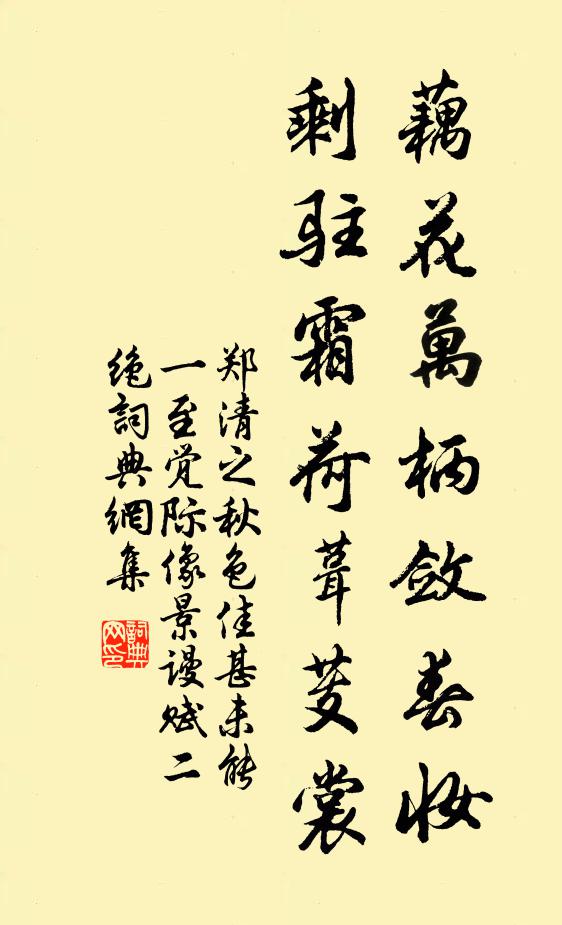 藕花萬柄斂春妝
剩駐霜荷葺芰裳
郑清之秋色佳甚未能
一至觉际像景谩赋二
绝詞典網集
詞典網印